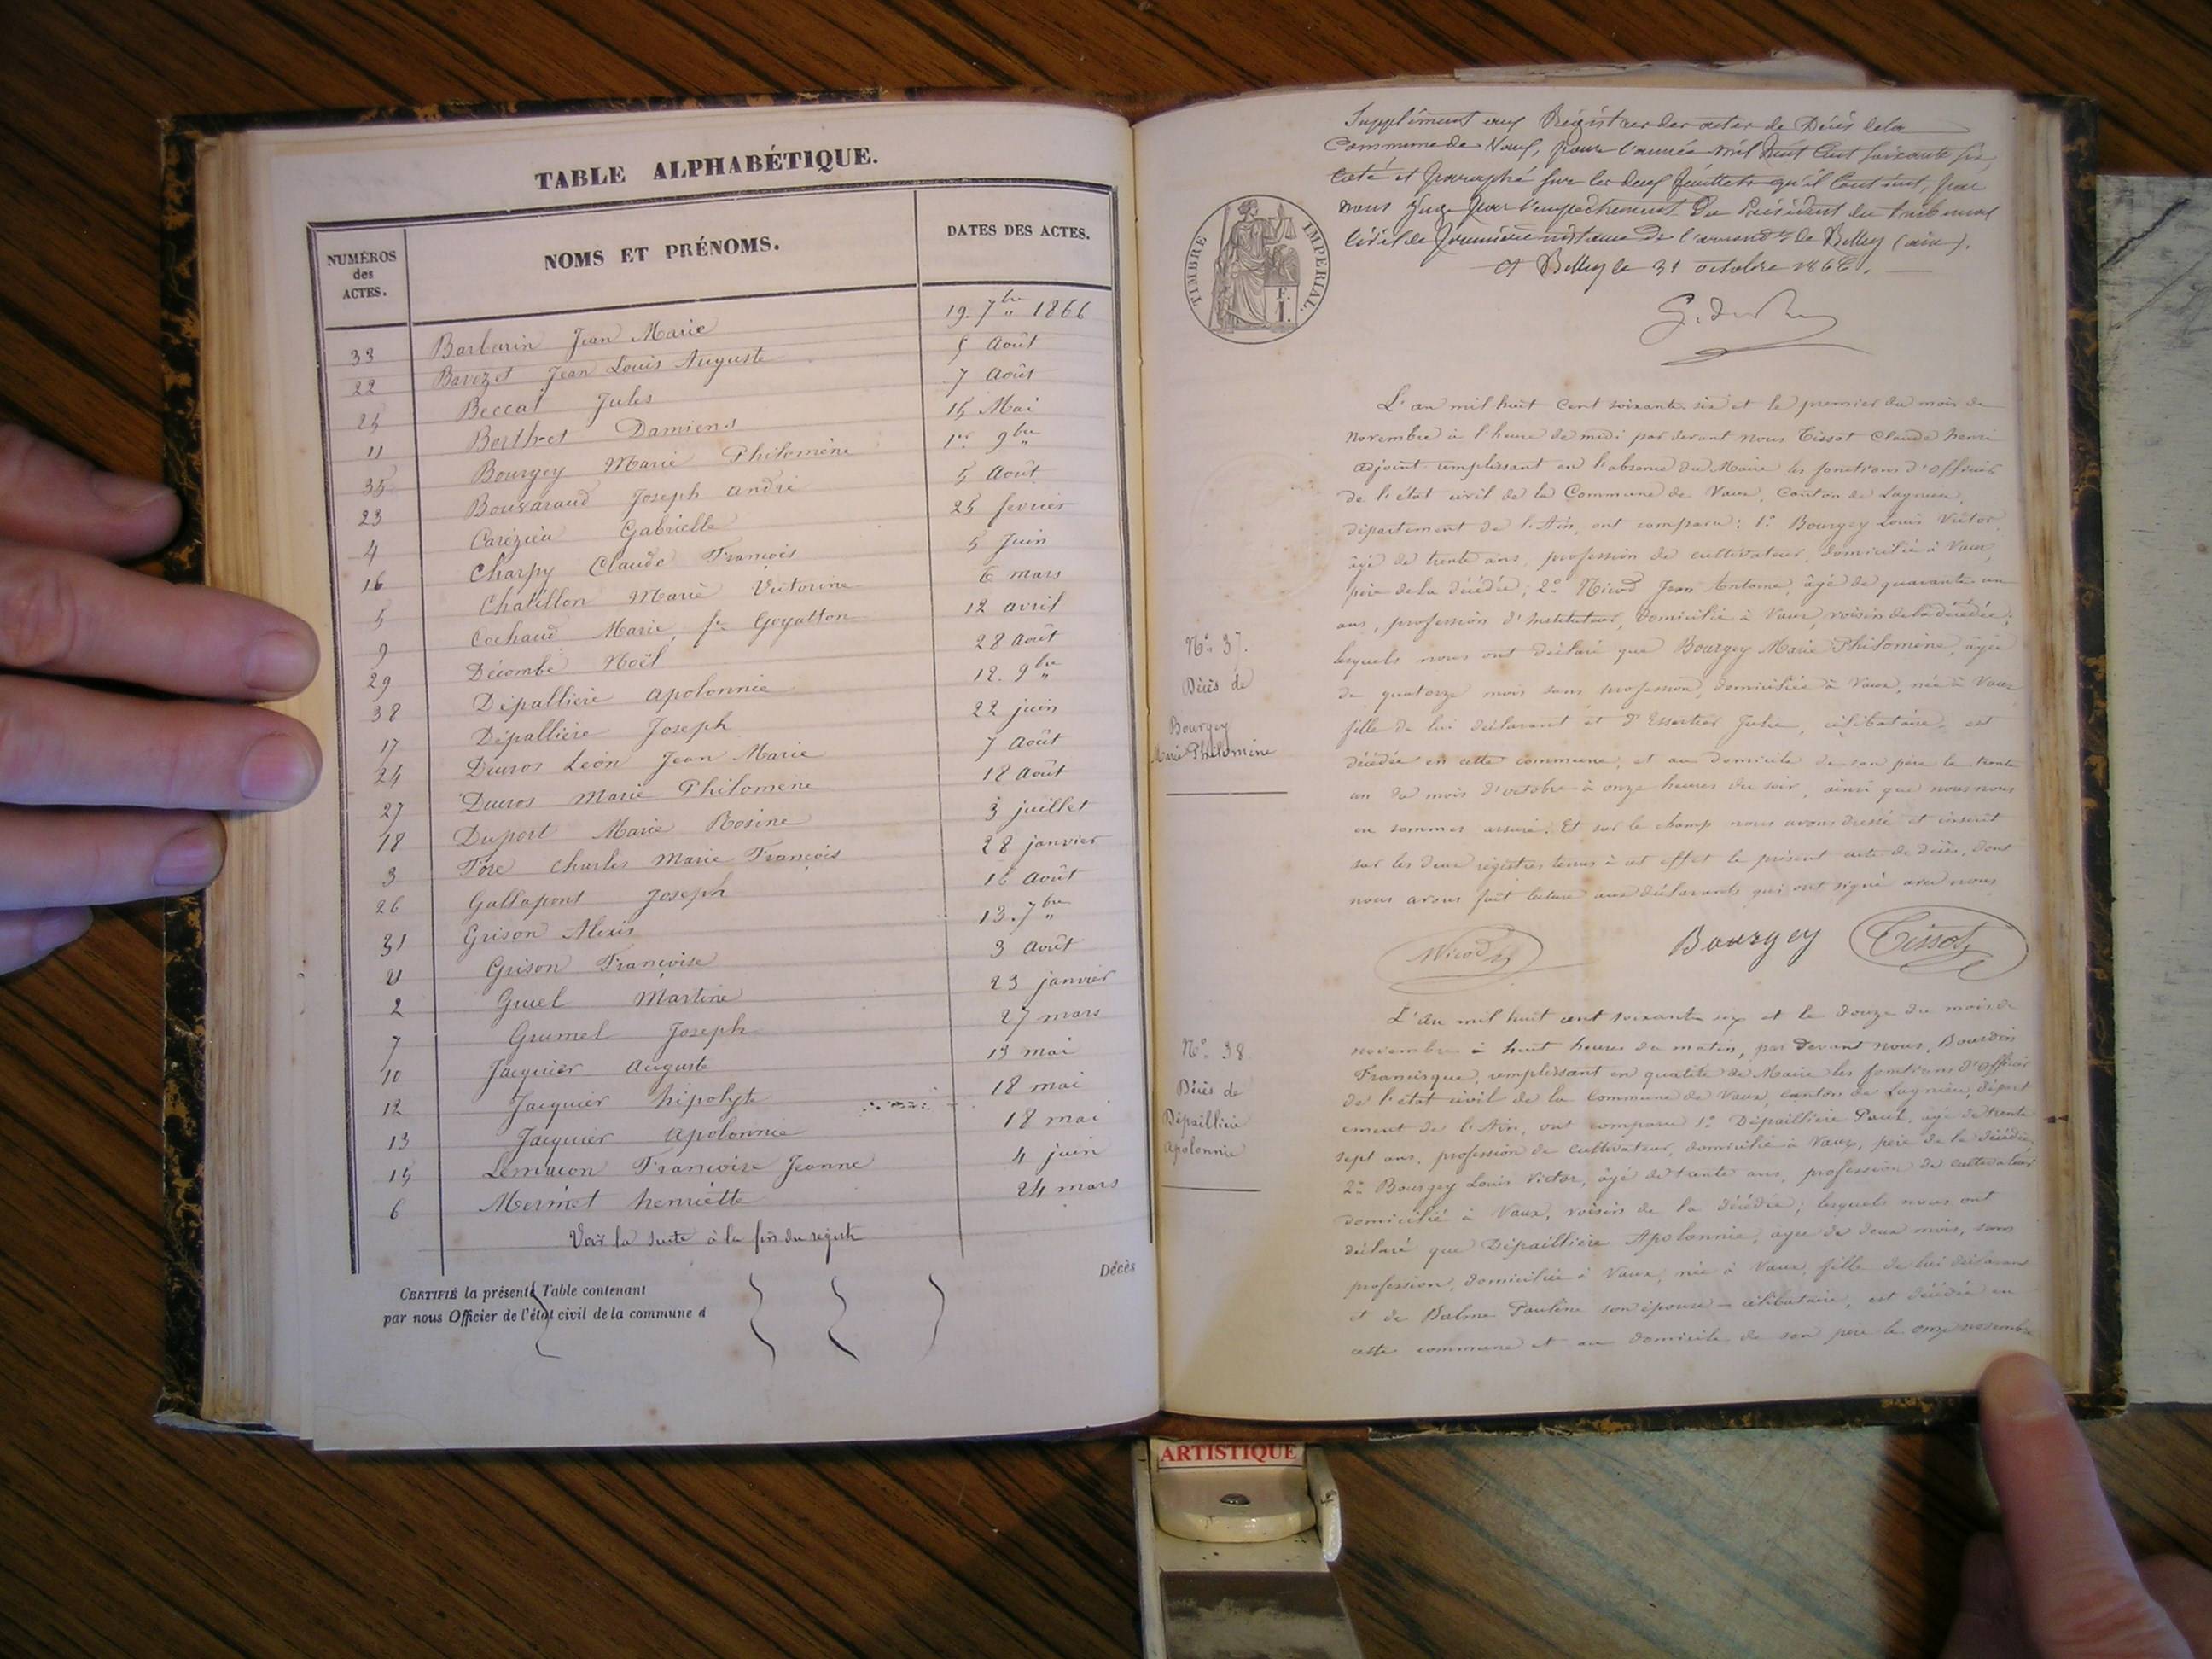 TABLE ALPHABÉTIQUE.
NUMÉROS des ACTES.
NOMS ET PRÉNOMS.
DATES DES ACTES.
33 Barbarin Jean Marie 19. 7bre 1866
22 Bavozet Jean Louis Auguste 5 Août
25 Beccat Jules 7 Août
11 Berthet Damiens 15 Mai
35 Bourgey Marie Philomène 1er 9bre
23 Bouvaraud Joseph André 5 Août
4 Carézieu Gabrielle 25 fevrier
16 Charpy Claude François 5 Juin
5 Chatillon Marie Victorine 6 mars
9 Cochaud Marie, fe Goyatton 12 avril
29 Décombe Noël 28 Août
38 Dépallière Apolonnie 12. 9bre
17 Dépallière Joseph 22 juin
24 Ducros Léon Jean Marie 7 Août
27 Ducros Marie Philomene 18 Août
18 Duport Marie Rosine 3 juillet
3 Fore Charles Marie François 28 janvier
26 Gallapont Joseph 16 Août
31 Grison Alexis 13. 7bre
21 Grison Françoise 3 Août
2 Gruel Martine 23 janvier
7 Grumel Joseph 27 mars
10 Jacquier Auguste 13 mai
12 Jacquier hipolyte 18 mai
13 Jacquier Apolonnie 18 mai
15 Lemacon Françoise Jeanne 4 juin
6 Mermet henriette 24 mars
Voir la suite à la fin du registre
Décès
CERTIFIÉ la présente Table contenant
par nous Officier de l'état civil de la commune d
Supplément aux Registres des actes de Décès de la
Commune de Vaux, pour l'année mil huit cent soixante six,
coté et paraphé sur les deux feuillets qu'il contient, par
nous Juge pour l'empêchement du Président du tribunal
civil de première instance de l'arrondt de Belley (ain).
A Belley le 31 octobre 1866.
TIMBRE IMPÉRIAL.
F.
1.
L'an mil huit cent soixante-six et le premier du mois de
novembre à l'heure de midi par devant nous Tissot Claude henri
adjoint remplissant en l'absence du Maire les fonctions d'officier
de l'état civil de la Commune de Vaux, Canton de Lagnieu,
département de l'Ain, ont comparu: 1° Bourgey Louis Victor
âgé de trente ans, profession de cultivateur, domicilié à Vaux,
père de la décédée; 2° Nicod Jean Antoine, âgé de quarante un
ans, profession d'Instituteur, domicilié à Vaux, voisin de la décédée;
lesquels nous ont déclaré que Bourgey Marie Philomène, âgée
de quatorze mois sans profession, domiciliée à Vaux, née à Vaux
fille de lui déclarant et d'Essertier Julie, célibataire, est
décédée en cette commune, et au domicile de son père le trente
un du mois d'octobre à onze heures du soir, ainsi que nous nous
en sommes assuré. Et sur le champ nous avons dressé et inscrit
sur les deux registres tenus à cet effet le présent acte de décès, dont
nous avons fait lecture aux déclarants qui ont signé avec nous
N° 37.
Décès de
Bourgey
Marie Philomène
Nicod
Bourgey
Tissot
L'an mil huit cent soixante six et le douze du mois de
novembre à huit heures du matin, par devant nous, Bourdin
Francisque, remplissant en qualité de Maire les fonctions d'officier
de l'état civil de la Commune de Vaux, canton de Lagnieu, départ
ement de l'Ain, ont comparu 1° Dépaillière Paul, âgé de trente
sept ans, profession de cultivateur, domicilié à Vaux, père de la décédée
2° Bourgey Louis Victor, âgé de trente ans, profession de cultivateur
domicilié à Vaux, voisin de la décédée; lesquels nous ont
déclaré que Dépaillière Apolonnie, agée de deux mois, sans
profession, domiciliée à Vaux, née à Vaux, fille de lui déclarant
et de Balme Pauline son épouse - célibataire, est décédée en
cette commune et au domicile de son père le onze novembre
N° 38
Décès de
Dépaillière
Apolonnie
ARTISTIQUE